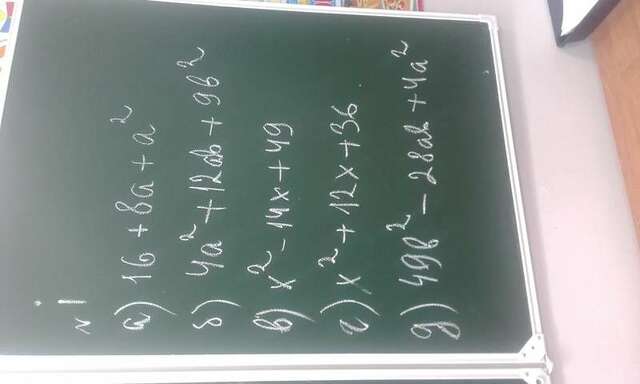 N 1
а) 16 + 8a + a²
б) 4a² + 12ab + 9b²
в) x² - 14x + 49
г) x² + 12x + 36
д) 49b² - 28ab + 4a²